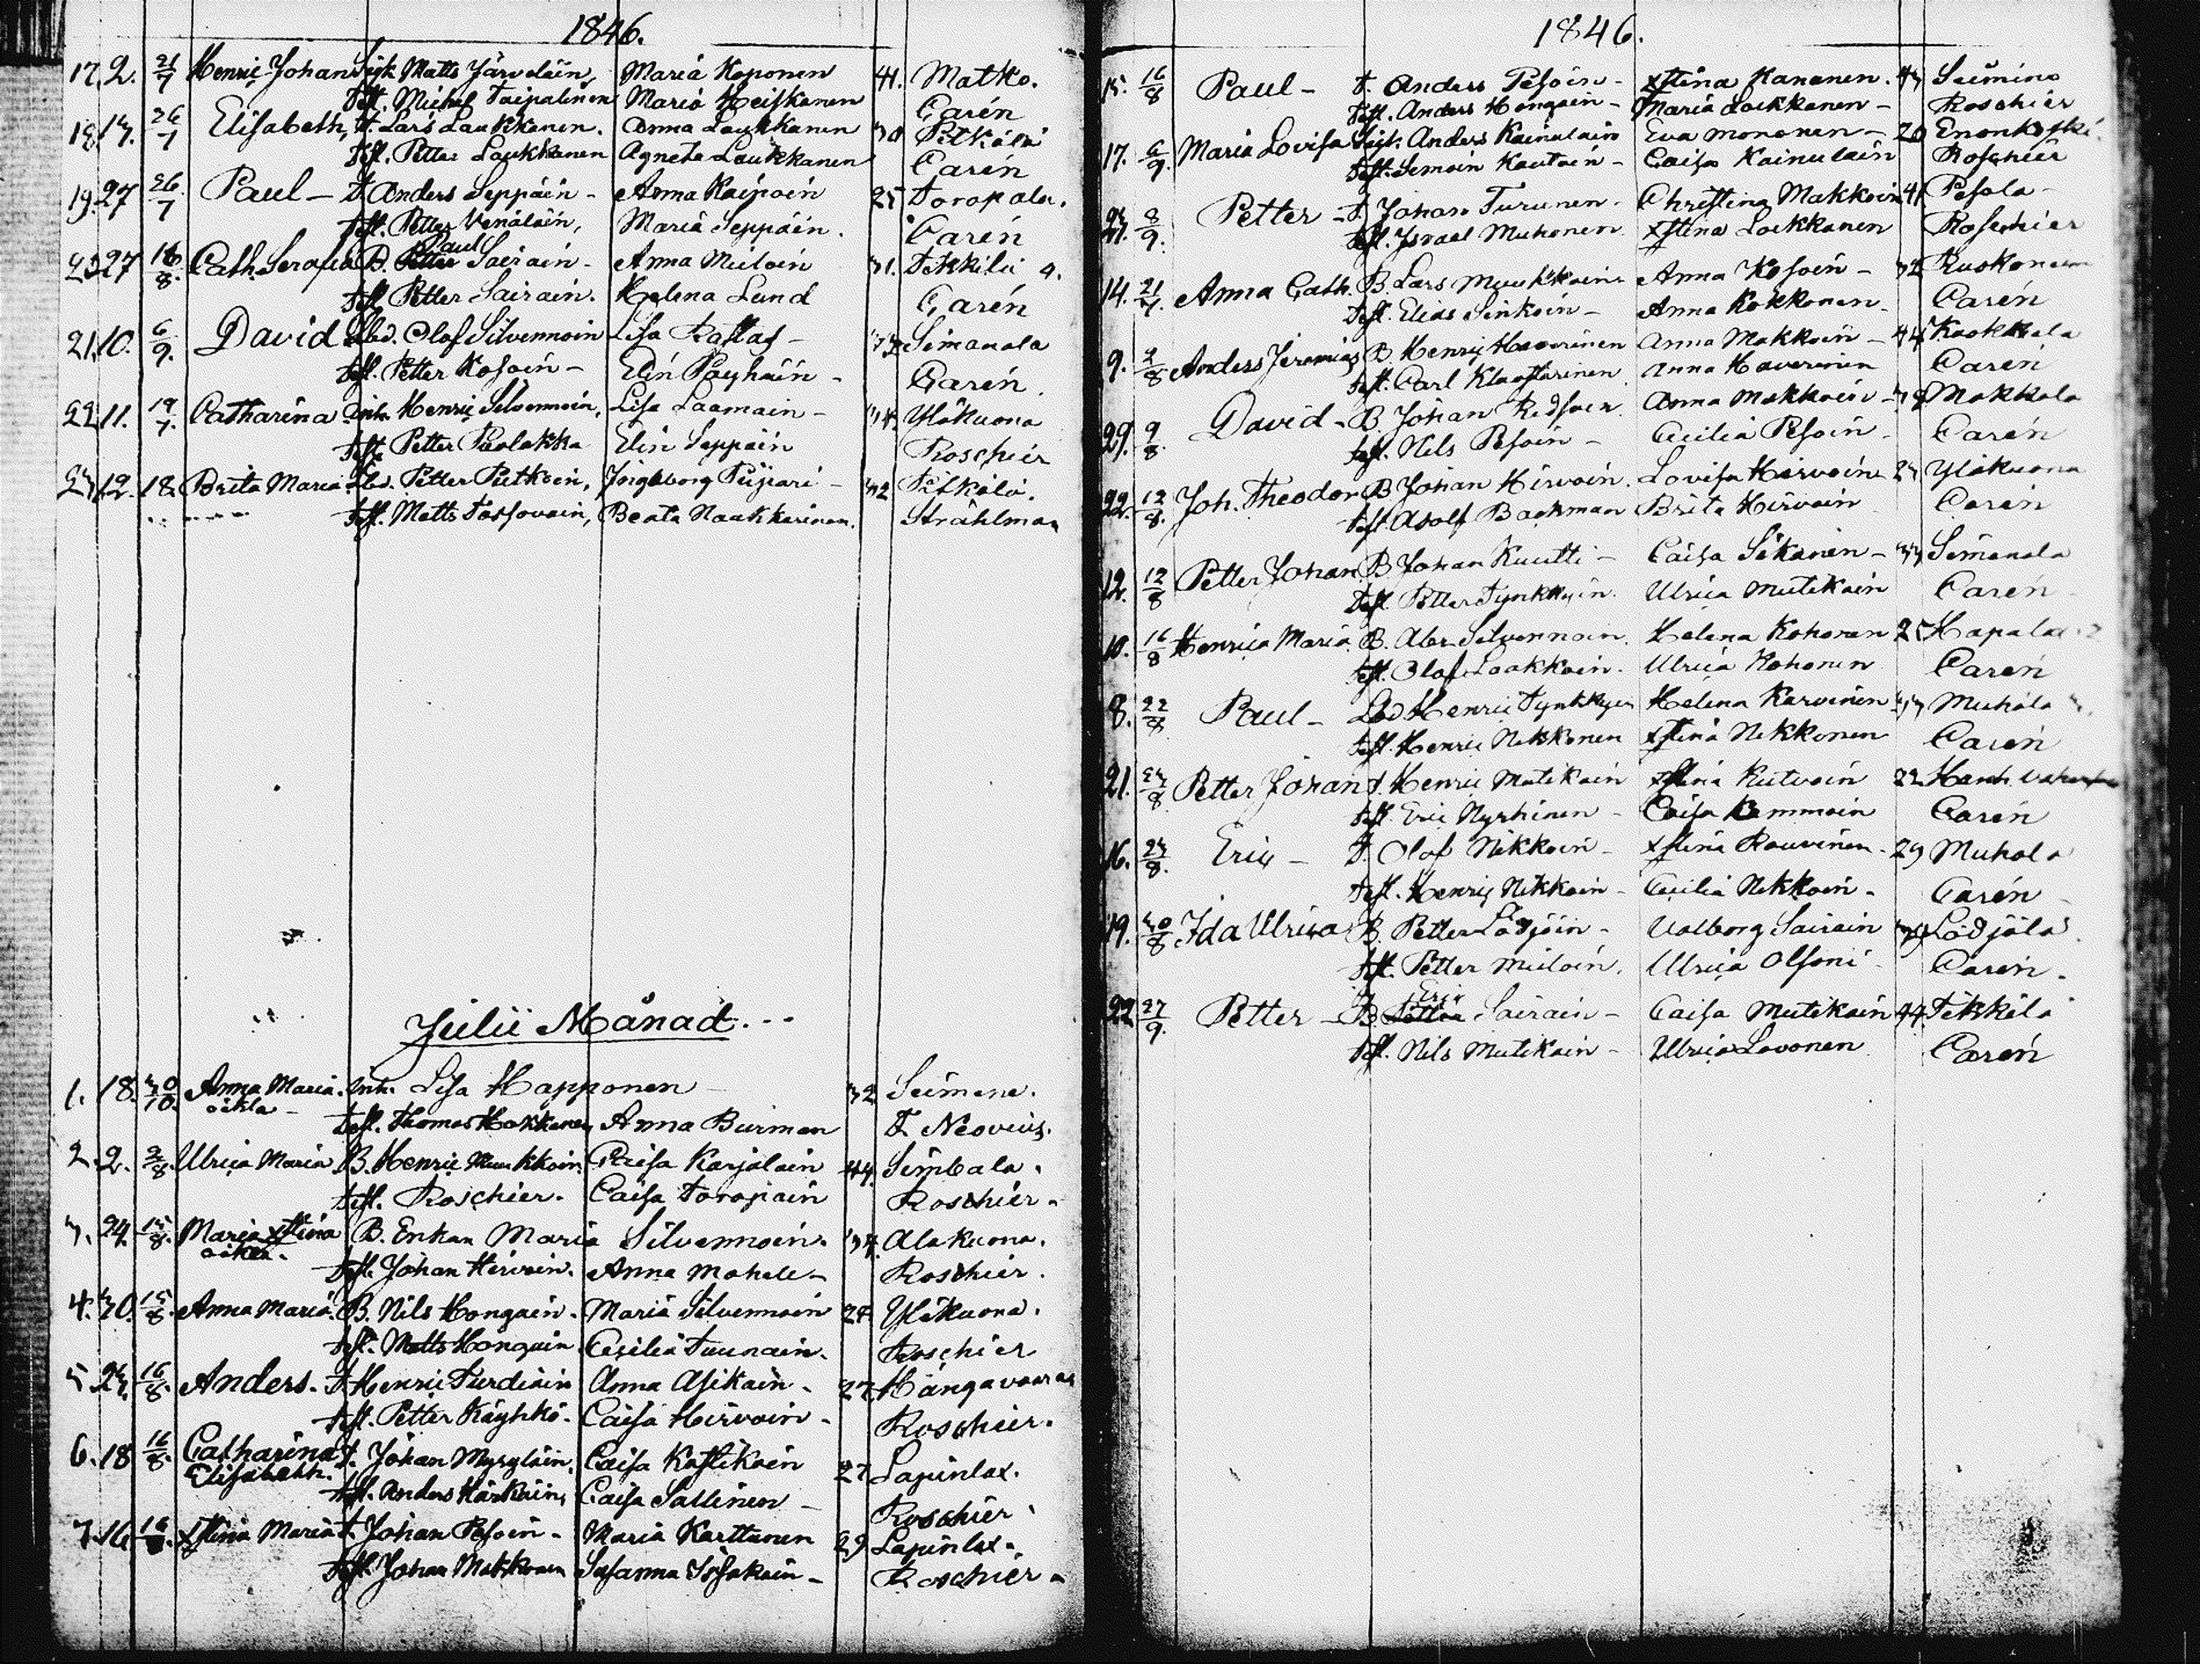 1846.
17. 2. 21/7 Henric Johan Matts Järveläin, Maria Koponen 41. Matko.
Test. Michel Taipalinen Maria Heiskanen Carén
18. 26/7 Elisabeth, T. Lars Laukkanen. Anna Laukkanen 30 Pitkälä
Test. Petter Laukkanen Agneta Laukkanen Carén
19. 27 26/7 Paul – T. Anders Seppäin – Anna Kaipain 25 Toropala.
Test. Petter Venäläin, Maria Seppäin. Carén
27 16/8. Cath. Serafia B. Petter Paul Sairain – Anna Miiloin 31. Tekkilä 4.
Test. Petter Sairain. Helena Lund Carén
21. 10. 6/9. David Lbd. Olof Silvennoin Lisa Rastas – Simanala
Test. Petter Kosoin – Elin Pöyhäin – Carén
22. 11. 19/7. Catharina Inh. Henric Silvennoin, Lisa Laamain – 34. Yläkuona
Test. Petter Puolakka Elin Seppäin Roschier
12. 18. Brita Maria Lbd. Petter Putkoin, Ingeborg Piipari – 32 Pitkälä.
Test. Matts Tossavain, Beata Naukkarinen. Stråhlman
Julii Månad. . . –
1. 18. 30/10. Anna Maria. Inh. Lisa Happonen – 32 Suimene.
oäkta – Test. Thomas Hakkanen Anna Burman T. Neovius.
2. 2. 2/8 Ulrica Maria B. Henric Muukkoin. Caisa Karjalain 44. Simbala.
Test. Roschier. Caisa Toropain Roschier –
3. 24. 15/8. Maria Xstina B. Enkan Maria Silvennoin. 34. Alakuona.
oäkta. Test. Johan Hirvoin. Anna Mahele – Roschier.
4. 30. 15/8. Anna Maria. B. Nils Hongain. Maria Silvennoin 24. Yläkuona.
Test. Matts Hongain Cecilia Tuunain. Roschier
5. 23. 16/8. Anders. T. Henric Turdiain Anna Asikain – 27. Hängavaara
Test. Petter Käyhkö. Caisa Hirvoin – Roschier.
6. 18 16/8. Catharina T. Johan Myryläin. Caisa Kostikain 27 Lapinlax.
Elisabeth. Test. Anders Härkäin, Caisa Sallinen – Roschier.
7. 16. 16/8. Xstina Maria T. Johan Pesoin – Maria Karttunen 29. Lapinlax.
Test. Johan Makkonen Susanna Issakain – Roschier –
1846.
15. 16/8 Paul – T. Anders Pesoin – Xstina Kananen. 43 Suimine
Test. Anders Hongain – Maria Laukkanen – Roschier
17. 6/9. Maria Lovisa Anders Kainulain Eva Mononen – 20 Enonkoski
Test. Simoin Kautoin – Caisa Kainulain Roschier
8/9. Petter – T. Johan Turunen. Christina Makkoin 41 Pesola –
Test. Israel Muhonen Xstina Laukkanen Roschier
14. 21/7. Anna Cath. B. Lars Muukkoin Anna Kosoin – 32 Ruokoniemi
Test. Elias Sinkoin – Anna Kokkonen – Carén
9. 2/8 Anders Jeremias B. Henric Haverinen Anna Makkoin – 44 Kaokkala
Test. Carl Klaastarinen Anna Haverinen Carén
29. 9/8. David – B. Johan Redsoer Anna Makkoin – 38 Makkola
Test. Nils Pesoin – Cecilia Pesoin – Carén
22. 12/8. Joh. Theodor B. Johan Hirvoin. Lovisa Hirvoin 23 Yläkuona
Test. Adolf Backman Brita Hirvoin Carén
12. 12/8 Petter Johan. B. Johan Kuutti – Caisa Sikanen – 33 Simanala
Test. Petter Tynkkyin. Ulrica Mutikain Carén
10. 16/8 Henrica Maria. B. Abr. Silvennoin. Helena Kohonen 25 Hapala
Test. Olof Laakkoin. Ulrica Kohonen Carén
8. 22/8 Paul – Lbd Henric Tynkkyin Helena Karvinen 33 Muhola
Test. Henric Nikkonen Xstina Nikkonen Carén
21. 23/8 Petter Johan T. Henric Mutikain Xstina Kutvoin 22 Hanhivaara
Test. Eric Nyrhinen – Caisa Kammoin Carén
16. 23/8. Eric – T. Olof Nikkoin – Xstina Rouvinen – 29 Muhola
Test. Henric Nikkoin – Cecilia Nikkoin – Carén
19. 30/8 Ida Ulrica B. Petter Lödjöin – Valborg Sairain Lödjölä.
Test. Petter Miiloin. Ulrica Olsoni – Carén.
22 27/9. Petter – B. Petter Eric Sairain – Caisa Mutikain 44. Tekkilä
Test. Nils Mutikain – Ulrica Lavonen Carén